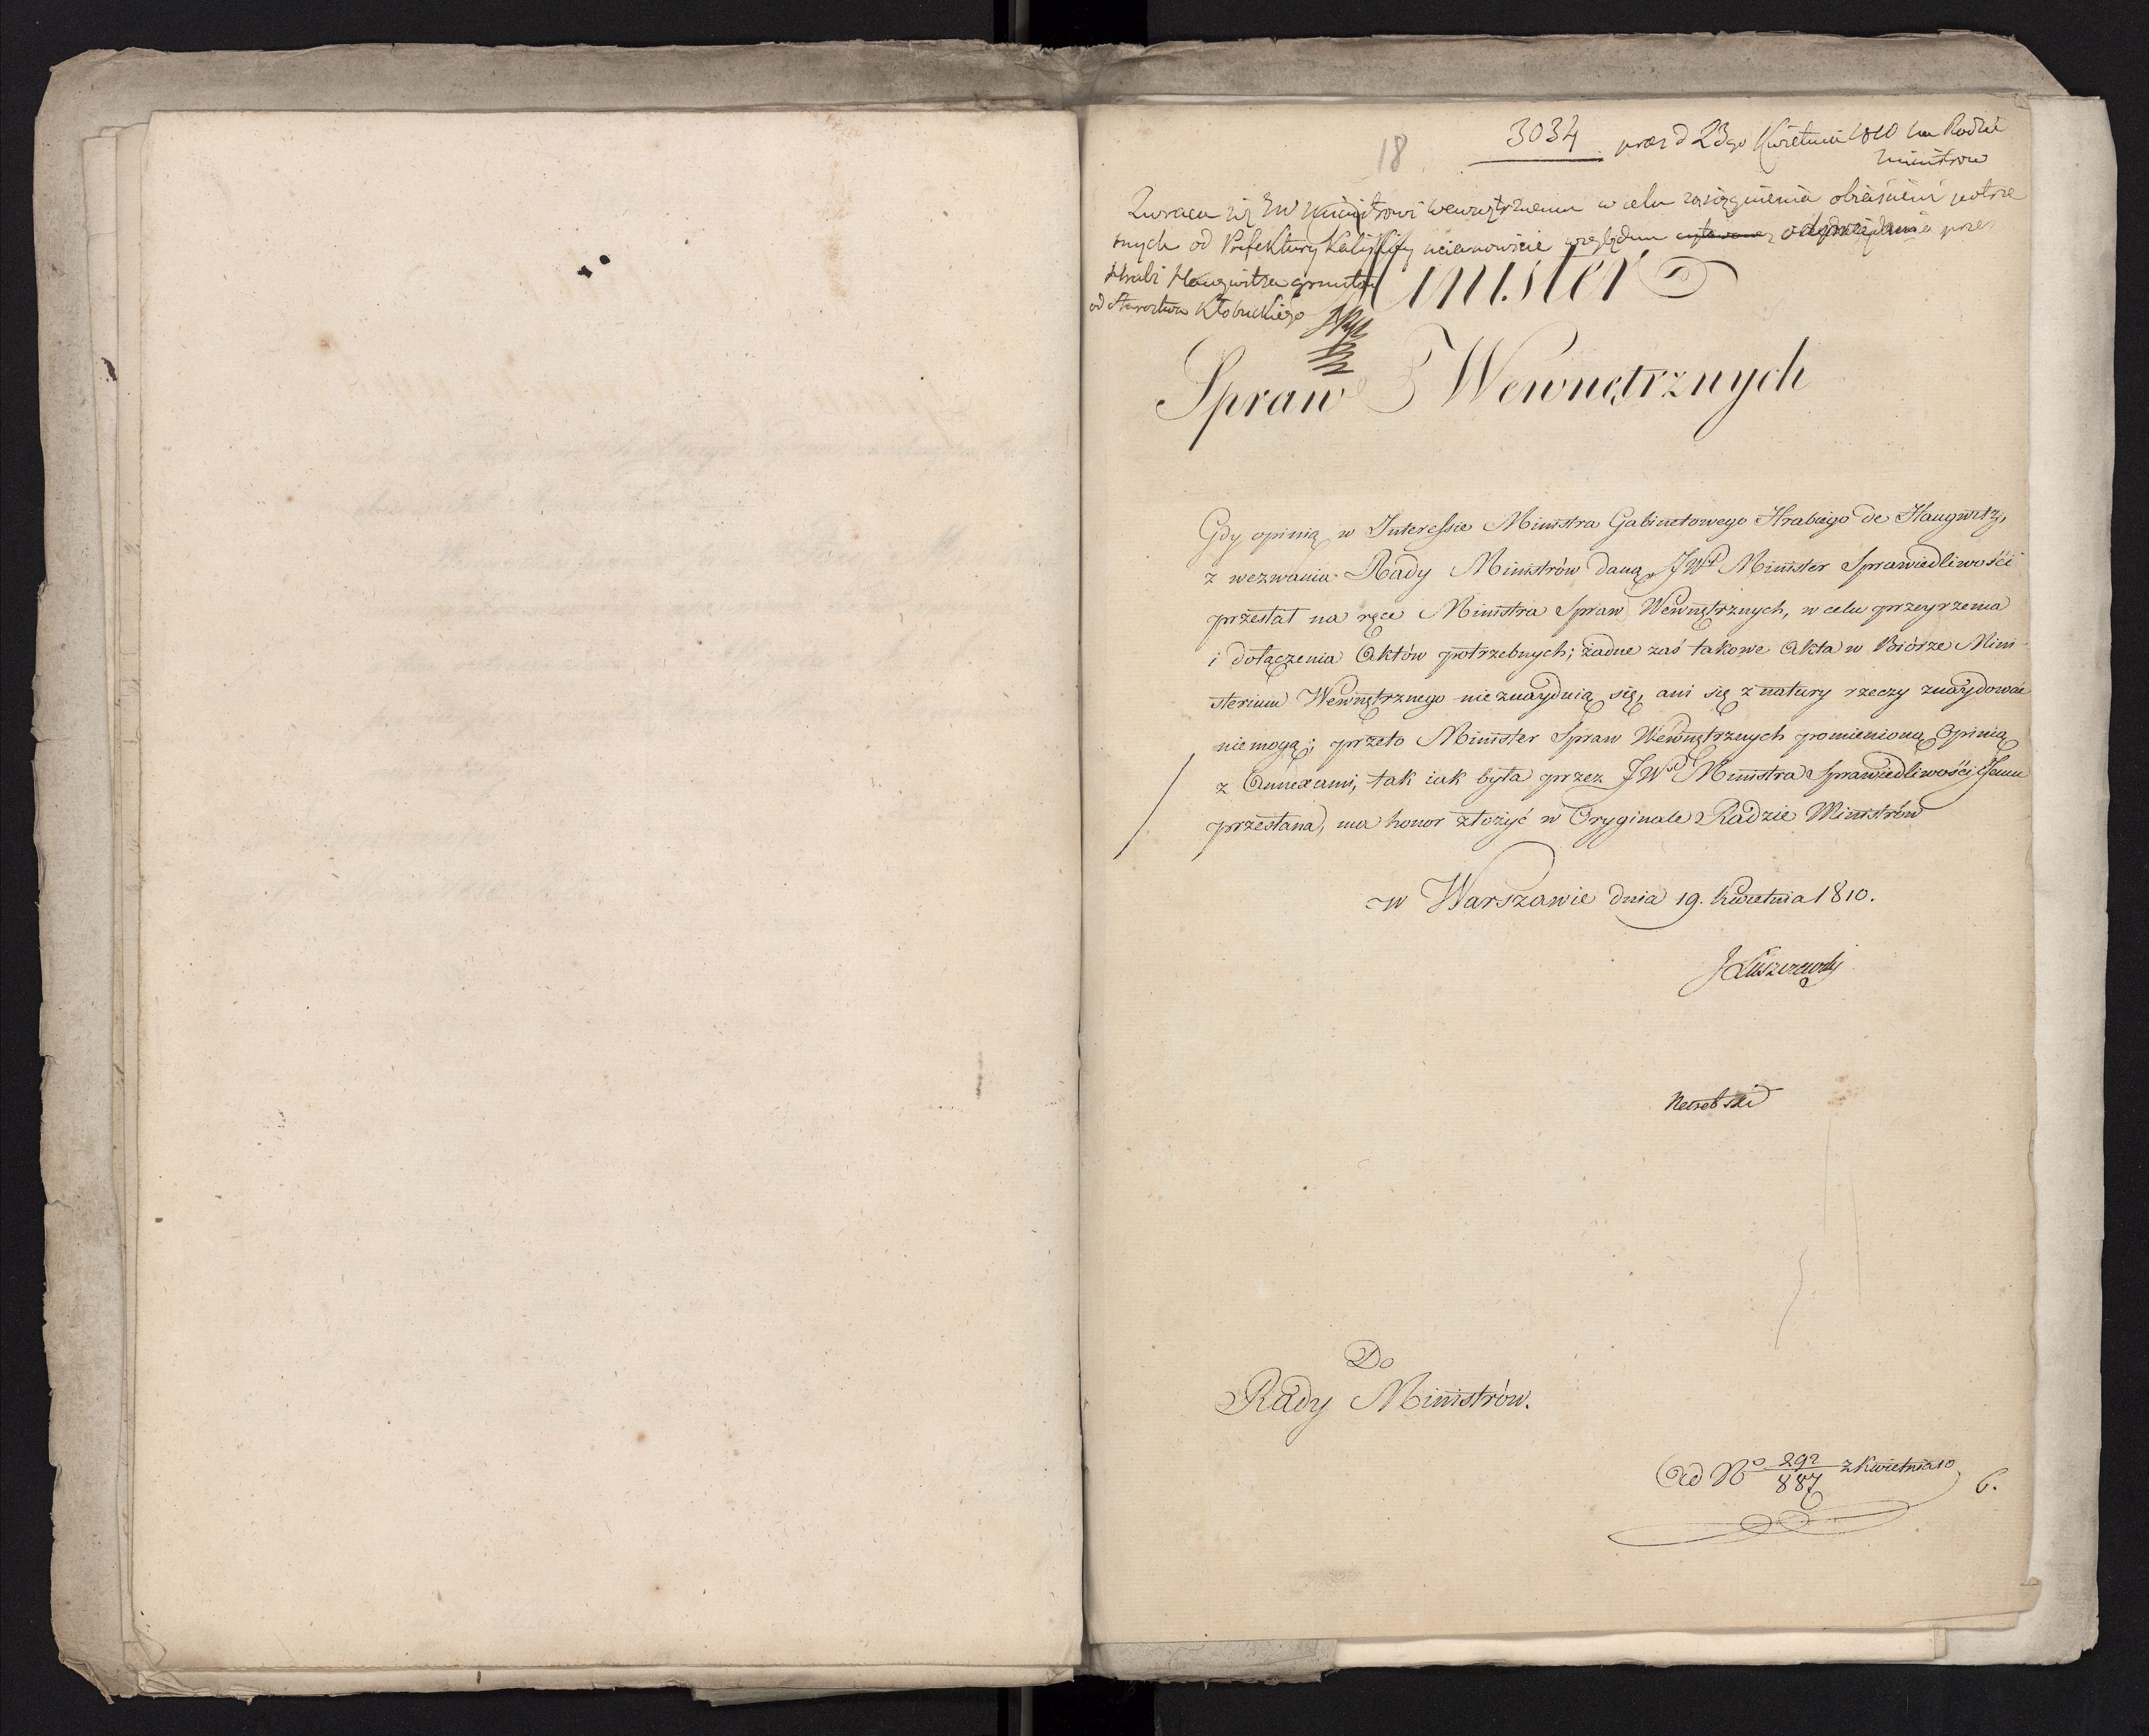 18
3034 prez d 23go Kwietnia 1810 na Radzie
Ministrow
Zwraca się JW Ministrowi Wewnętrznemu w celu zasiągnienia obiaśnień potrze
bnych od Prefektury Kaliskiey mianowicie względem odprzedania przez
Hrabi Haugwitza gruntów
od Starostwa Kłobuckiego
Minister
Spraw Wewnętrznych
Gdy opinią w Interessie Ministra Gabinetowego Hrabiego de Haugwitz,
z wezwania Rady Ministrów daną, JWy Minister Sprawiedliwości
przesłał na ręce Ministra Spraw Wewnętrznych, w celu przeyrzenia
i dołączenia Aktów potrzebnych; żadne zaś takowe Akta w Biórze Mini-
sterium Wewnętrznego nie znayduią się, ani się z natury rzeczy znaydować
nie mogą; przeto Minister Spraw Wewnętrznych pomienioną Opinią
z Annexami, tak iak była przez JWo Ministra Sprawiedliwości Jemu
przesłana, ma honor złożyć w Oryginale Radzie Ministrów
w Warszawie dnia 19. Kwietnia 1810.
J Łuszczewski
Do
Rady Ministrów.
Ad No 292/887 z Kwietnia 10
6.